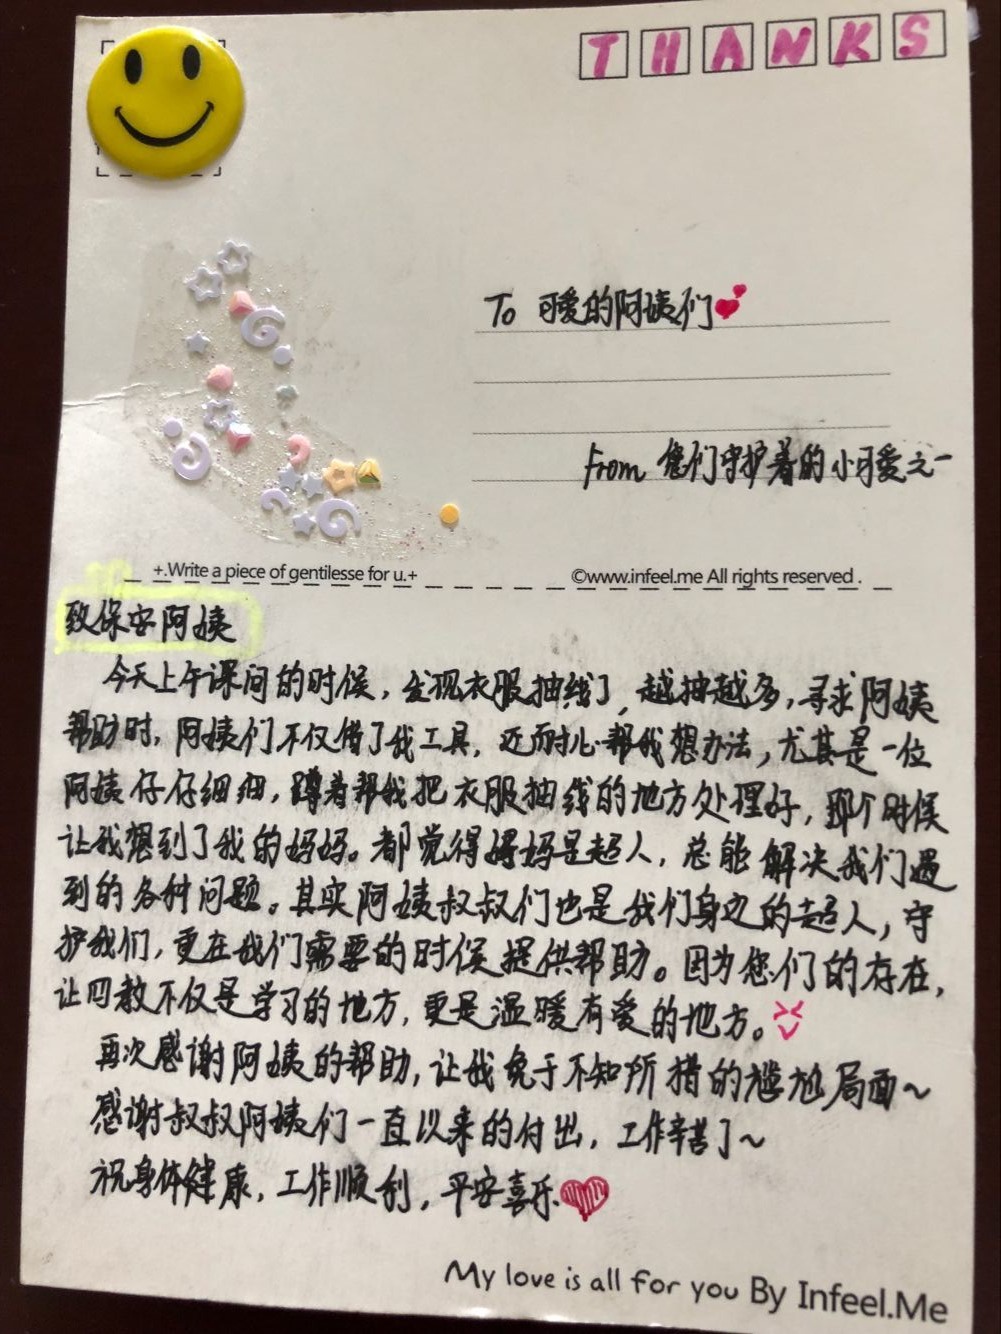 THANKS
To 可爱的阿姨们
from 您们守护着的小可爱之一
+.Write a piece of gentilesse for u.+
©www.infeel.me All rights reserved .
致保安阿姨
今天上午课间的时候，发现衣服抽线了，越抽越多，寻求阿姨
帮助时，阿姨们不仅借了我工具，还耐心帮我想办法，尤其是一位
阿姨仔仔细细，蹲着帮我把衣服抽线的地方处理好，那个时候
让我想到了我的妈妈。都觉得妈妈是超人，总能解决我们遇
到的各种问题。其实阿姨叔叔们也是我们身边的超人，守
护我们，更在我们需要的时候提供帮助。因为您们的存在，
让四教不仅是学习的地方，更是温暖有爱的地方。
再次感谢阿姨的帮助，让我免于不知所措的尴尬局面～
感谢叔叔阿姨们一直以来的付出，工作辛苦了～
祝身体健康，工作顺利，平安喜乐
My love is all for you By Infeel.Me